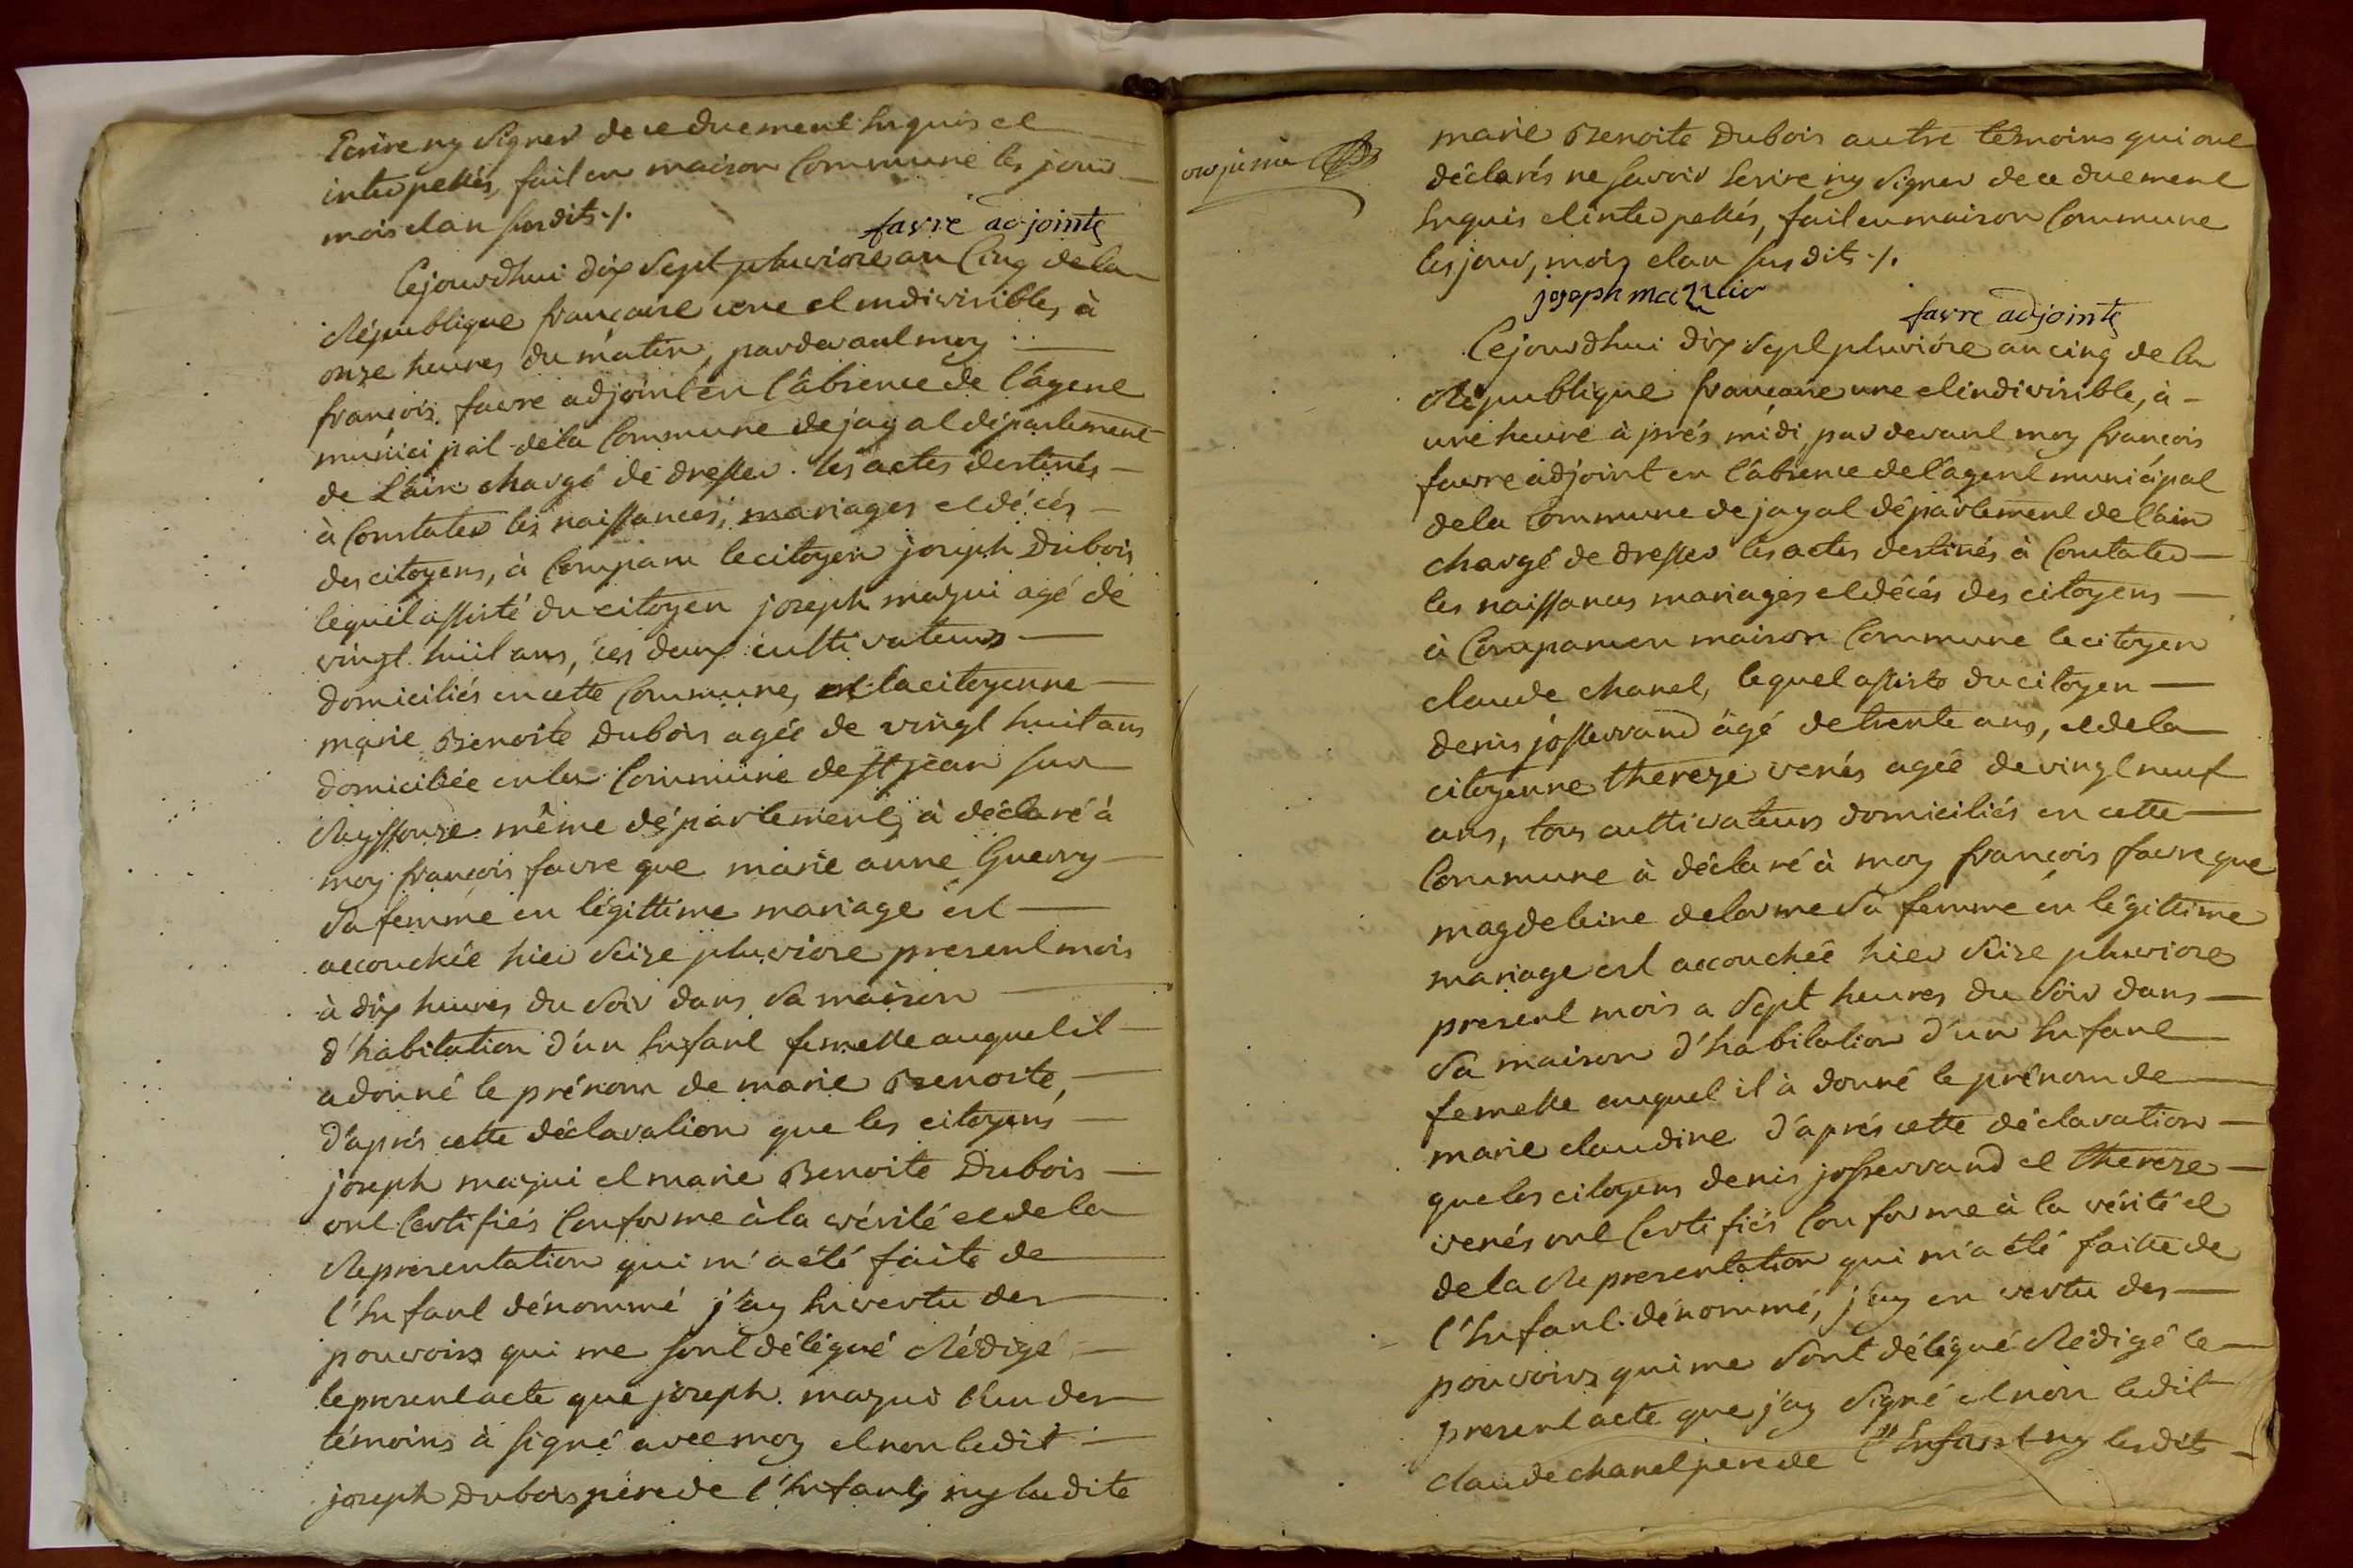 Ecrire ny signer de ce duement Enquis et
interpellés, fait en maison Commune les jour
mois et an susdits ./.
favre adjoint
Cejourdhui dix Sept pluviose an Cinq de la
République française une et indivisible, à
onze heures du matin, pardevant moy
françois favre adjoint en l'absence de l'agent
municipal de la Commune de jayat département
de L'ain chargé de dresser les actes destinés
à Constater les naissances, mariages et décés
des citoyens, à Comparu le citoyen joseph Dubois
lequel assisté du citoyen joseph mazui agé de
vingt huit ans, ces deux cultivateurs
domiciliés en cette Commune, et la citoyenne
marie Benoite Dubois agée de vingt huit ans
domiciliée en la Commune de st jean sur
Reyssouze même département, à déclaré à
moy françois favre que marie anne Guerry
Sa femme en légittime mariage est
accouchée hier Seize pluviose present mois
à dix heures du Soir dans Sa maison
d'habitation d'un Enfant femelle auquel il
a donné le prénom de marie Benoite,
d'aprés cette déclaration que les citoyens
joseph mazui et marie Benoite Dubois
ont Certifiés Conforme à la vérité et de la
Representation qui m'a été faite de
l'Enfant dénommé j'ay En vertu des
pouvoirs qui me sont délégué Rédigé
le present acte que joseph mazui l'un des
témoins à signé avec moy et non ledit
joseph Dubois pére de l'Enfant, ny ladite
marie Benoite Dubois autre témoins qui ont
déclarés ne savoir Ecrire ny signer de ce duement
Enquis et interpellés, fait en maison Commune
les jour, mois et an susdits ./.
joseph mazuir
favre adjoint
Cejourdhui dix Sept pluviose an cinq de la
République française une et indivisible, à
une heure àprés midi, par devant moy françois
favre adjoint en l'absence de l'agent municipal
de la Commune de jayat département de l'ain
chargé de dresser les actes destinés à Constater
les naissances mariages et décés des citoyens
à Comparu en maison Commune le citoyen
claude chanel, lequel assisté du citoyen
denis josserrand âgé de trente ans, et de la
citoyenne thereze venés agée de vingt neuf
ans, tous cultivateurs domiciliés en cette
Commune à déclaré à moy françois favre que
magdeleine delorme Sa femme en légittime
mariage est accouchée hier Seize pluviose
present mois a Sept heures du Soir dans
Sa maison d'habitation d'un Enfant
femelle auquel il à donné le prénom de
marie claudine d'aprés cette déclaration
que les citoyens denis josserrand et thereze
venés ont Certifiés Conforme à la vérité et
de la Representation qui m'a été faitte de
l'Enfant dénommé, j'ay en vertu des
pouvoirs qui me Sont délégué Rédigé le
present acte que j'ay Signé et non ledit
claude chanel pere de l'Enfant ny lesdits